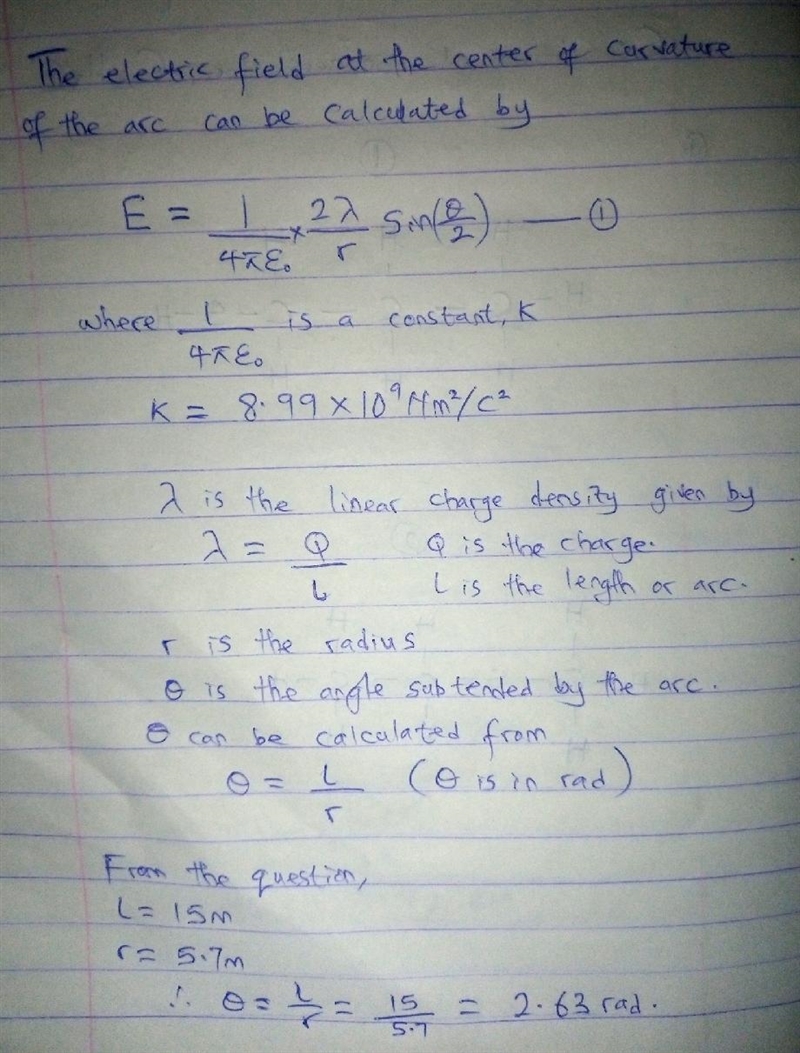 The electric field at the center of curvature
of the arc can be calculated by
E = 1/4πε₀ × 2λ/r Sin(θ/2) — ①
where 1/4πε₀ is a constant, K
K = 8.99 × 10⁹ Nm²/C²
λ is the linear charge density given by
λ = Q/L Q is the charge.
L is the length or arc.
r is the radius
θ is the angle subtended by the arc.
θ can be calculated from
θ = L/r (θ is in rad)
From the question,
L = 15m
r = 5.7m
∴ θ = L/r = 15/5.7 = 2.63 rad.